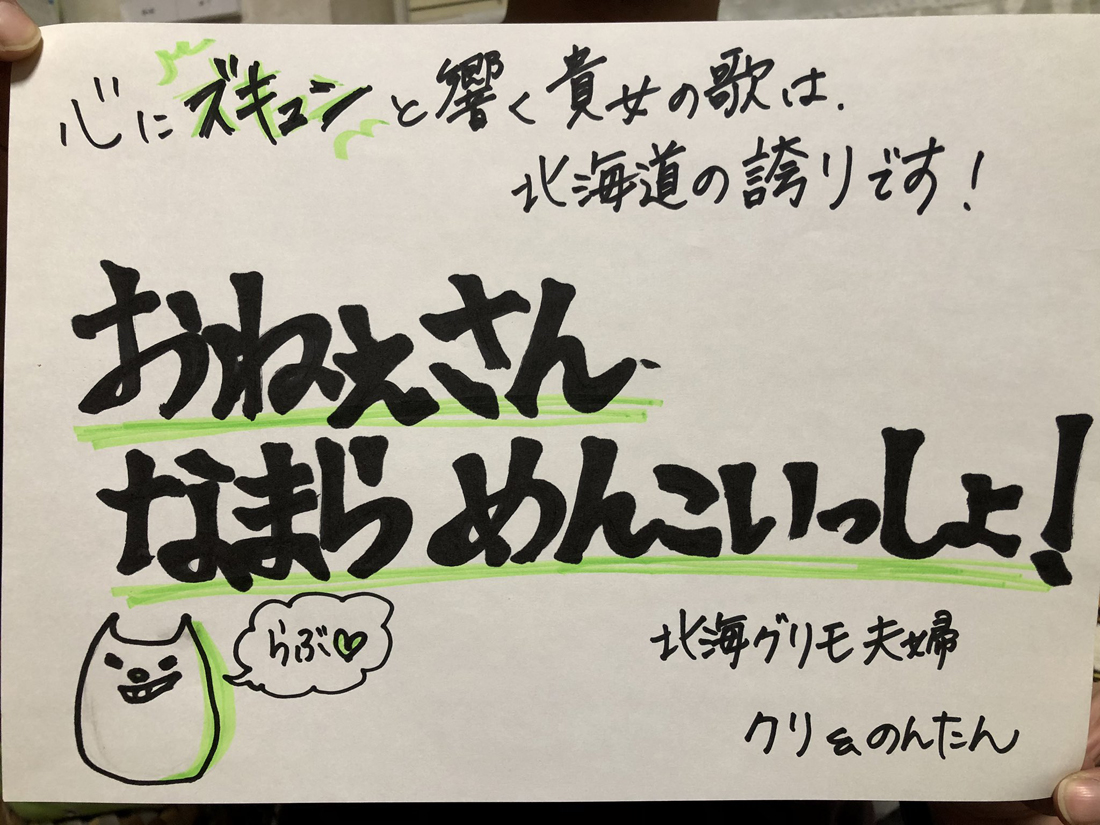 心にズキュンと響く貴女の歌は、
北海道の誇りです!
おねぇさん、
なまら めんこいっしょ!
らぶ♡
北海グリモ夫婦
クリ&のんたん